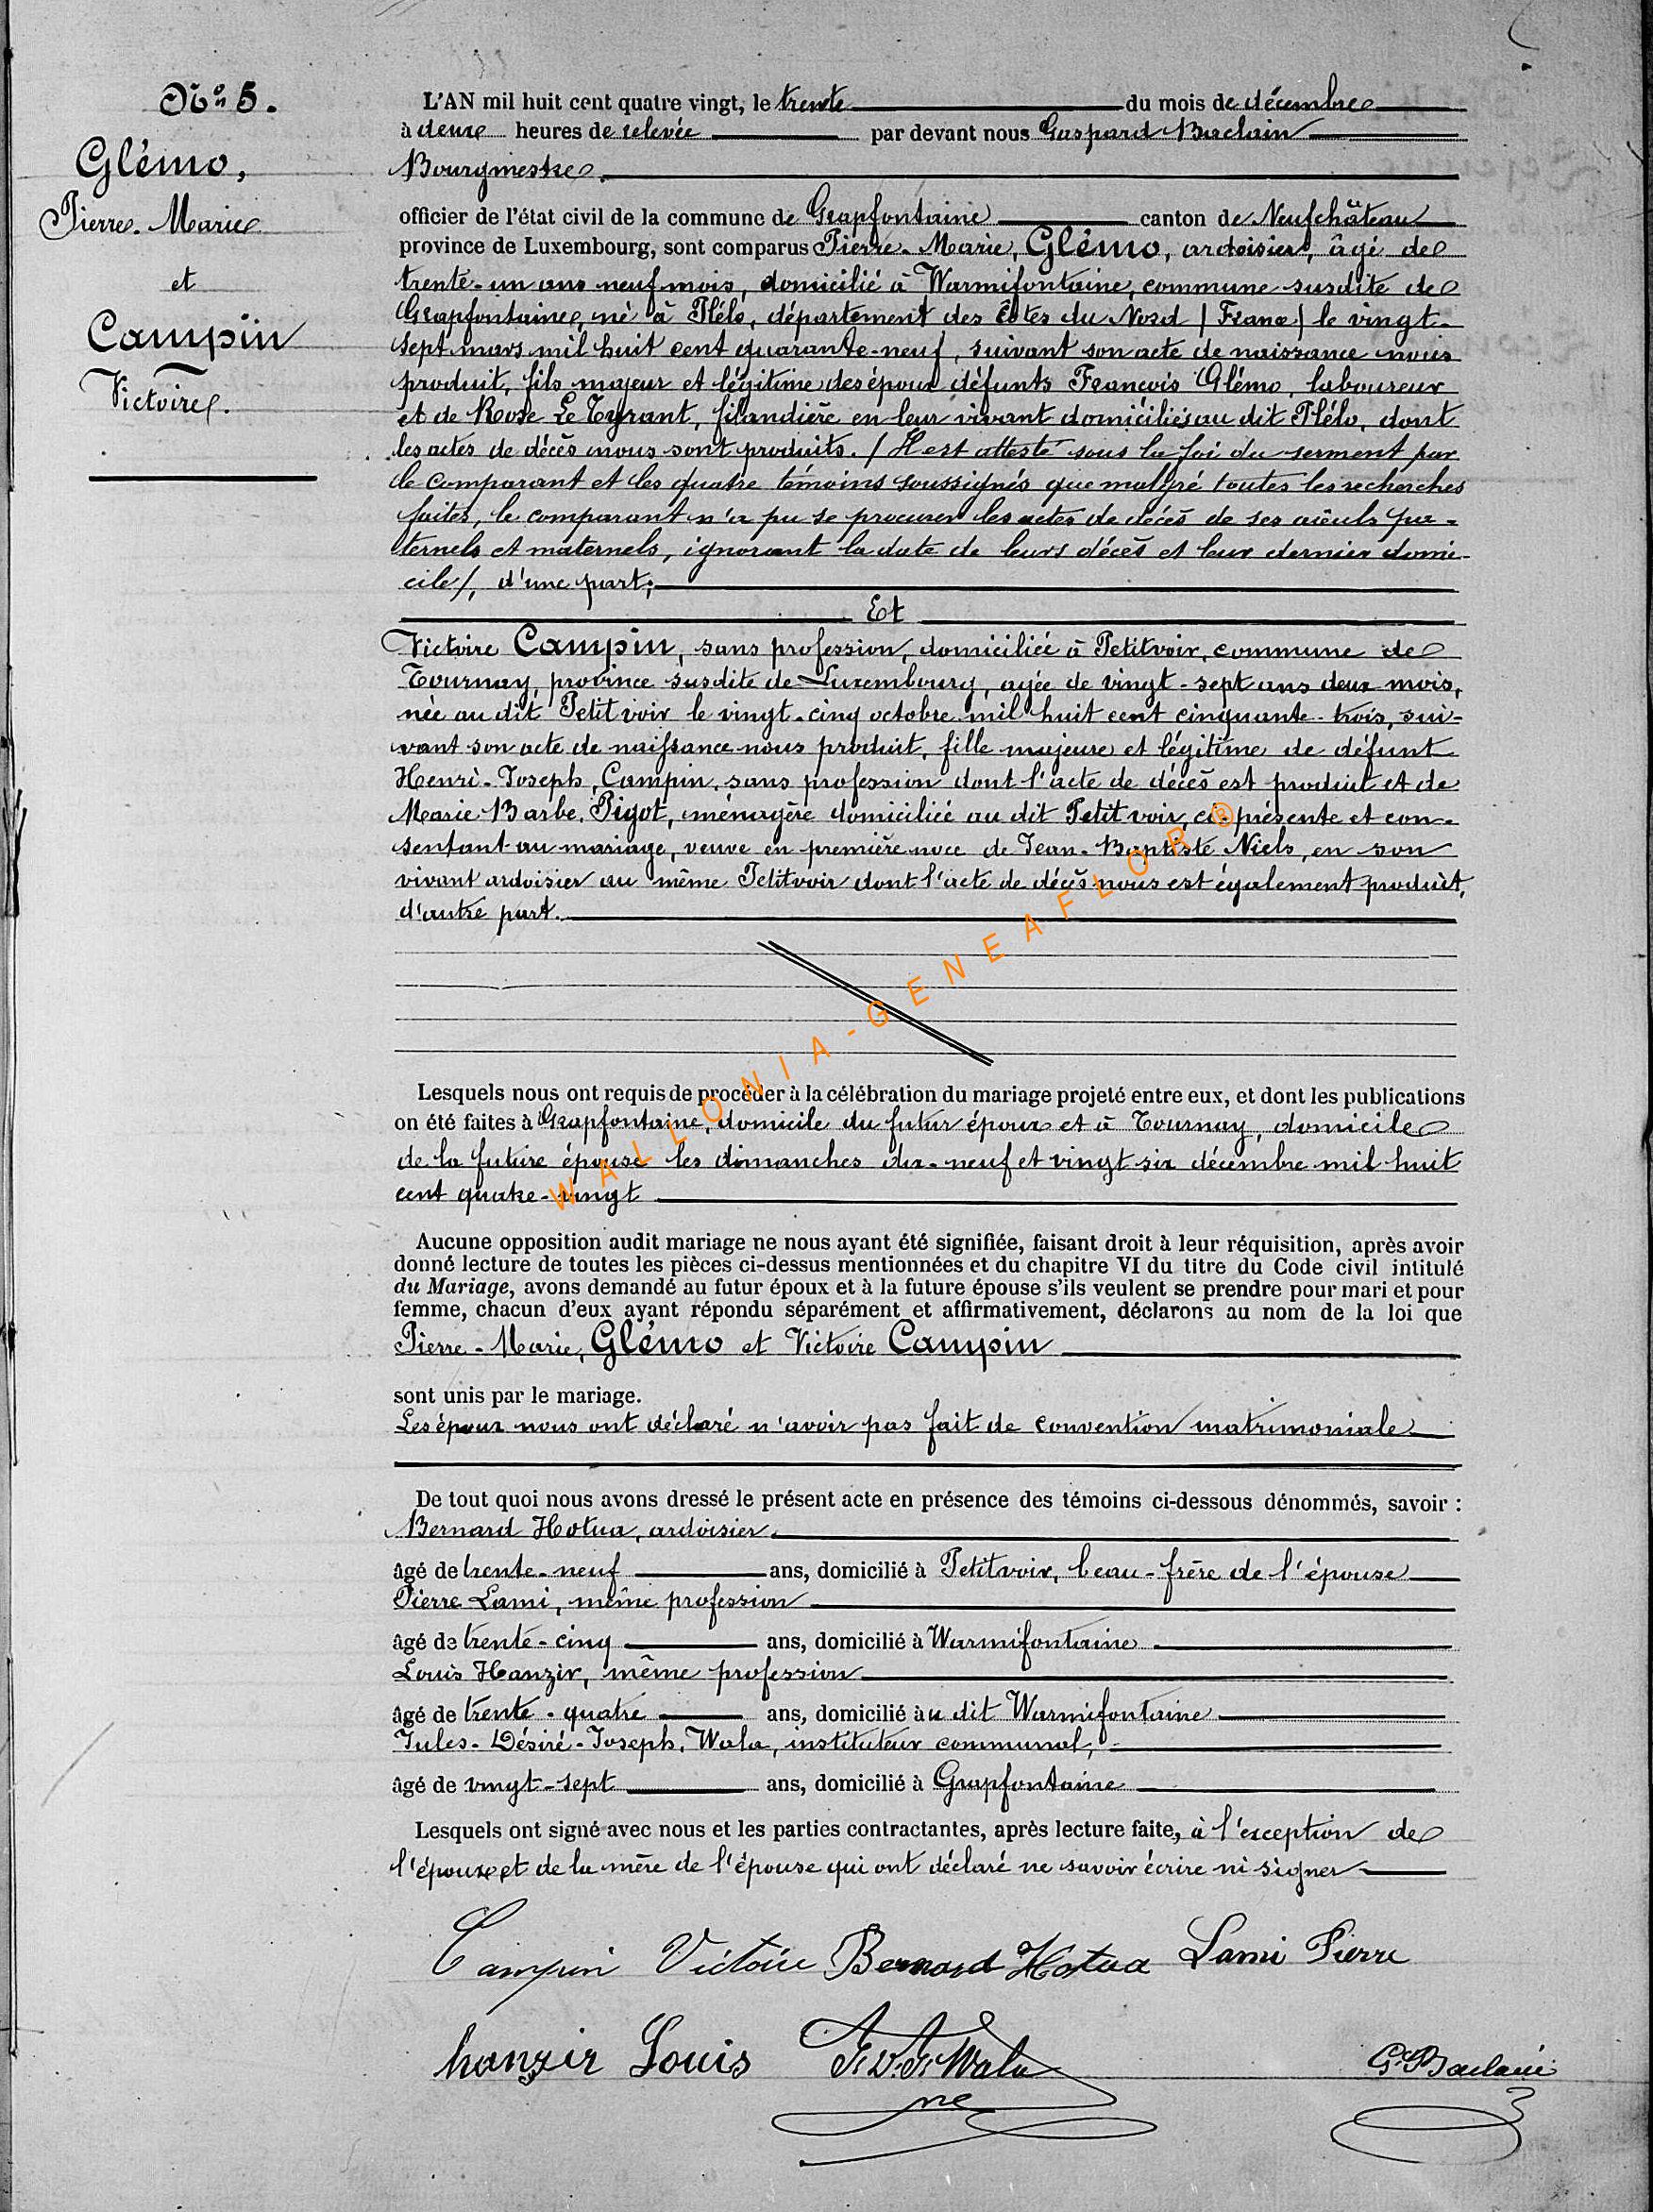 N° 5.
Glémo,
Pierre-Marie
et
Campin
Victoire.
L'AN mil huit cent quatre vingt, le trente du mois de décembre
à deux heures de relevée par devant nous Gaspard Baclain
Bourgmestre.
officier de l'état civil de la commune de Grapfontaine canton de Neufchâteau
province de Luxembourg, sont comparus Pierre-Marie, Glémo, ardoisier, âgé de
trente-un ans neuf mois, domicilié à Warmifontaine, commune susdite de
Grapfontaine, né à Plélo, département des Côtes du Nord / France / le vingt-
sept mars mil huit cent quarante-neuf, suivant son acte de naissance nous
produit, fils majeur et légitime des époux défunts François Glémo, laboureur
et de Rose Le Tyrant, filandière en leur vivant domiciliés au dit Plélo, dont
les actes de décès nous sont produits. / Il est attesté sous la foi du serment par
le comparant et les quatre témoins soussignés que malgré toutes les recherches
faites, le comparant n'a pu se procurer les actes de décès de ses aïeuls pa-
ternels et maternels, ignorant la date de leurs décès et leur dernier domi-
cile /, d'une part;
Et
Victoire Campin, sans profession, domiciliée à Petitvoir, commune de
Tournay, province susdite de Luxembourg, agée de vingt-sept ans deux mois,
née au dit Petitvoir le vingt-cinq octobre mil huit cent cinquante-trois, sui-
vant son acte de naissance nous produit, fille majeure et légitime de défunt
Henri-Joseph, Campin, sans profession dont l'acte de décès est produit et de
Marie Barbe, Pigot, ménagère domiciliée au dit Petitvoir, ci-présente et con-
sentant au mariage, veuve en première noce de Jean-Baptiste Niels, en son
vivant ardoisier au même Petitvoir dont l'acte de décès nous est également produit,
d'autre part.
WALLONIA-GENEAFLOR ®
Lesquels nous ont requis de procéder à la célébration du mariage projeté entre eux, et dont les publications
on été faites à Grapfontaine, domicile du futur époux et à Tournay, domicile
de la future épouse les dimanches dix-neuf et vingt six décembre mil huit
cent quatre-vingt
Aucune opposition audit mariage ne nous ayant été signifiée, faisant droit à leur réquisition, après avoir
donné lecture de toutes les pièces ci-dessus mentionnées et du chapitre VI du titre du Code civil intitulé
du Mariage, avons demandé au futur époux et à la future épouse s'ils veulent se prendre pour mari et pour
femme, chacun d'eux ayant répondu séparément et affirmativement, déclarons au nom de la loi que
Pierre-Marie, Glémo et Victoire Campin
sont unis par le mariage.
Les époux nous ont déclaré n'avoir pas fait de convention matrimoniale
De tout quoi nous avons dressé le présent acte en présence des témoins ci-dessous dénommés, savoir :
Bernard Hotua, ardoisier
âgé de trente-neuf ans, domicilié à Petitvoir, beau-frère de l'épouse
Pierre Lami, même profession
âgé de trente-cinq ans, domicilié à Warmifontaine
Louis Hanzir, même profession
âgé de trente-quatre ans, domicilié au dit Warmifontaine
Jules-Désiré-Joseph, Wala, instituteur communal,
âgé de vingt-sept ans, domicilié à Grapfontaine
Lesquels ont signé avec nous et les parties contractantes, après lecture faite, à l'exception de
l'époux et de la mère de l'épouse qui ont déclaré ne savoir écrire ni signer
Campin Victoire Bernard Hotua Lami Pierre
hanzir Louis J. D. J. Wala G. Baclain